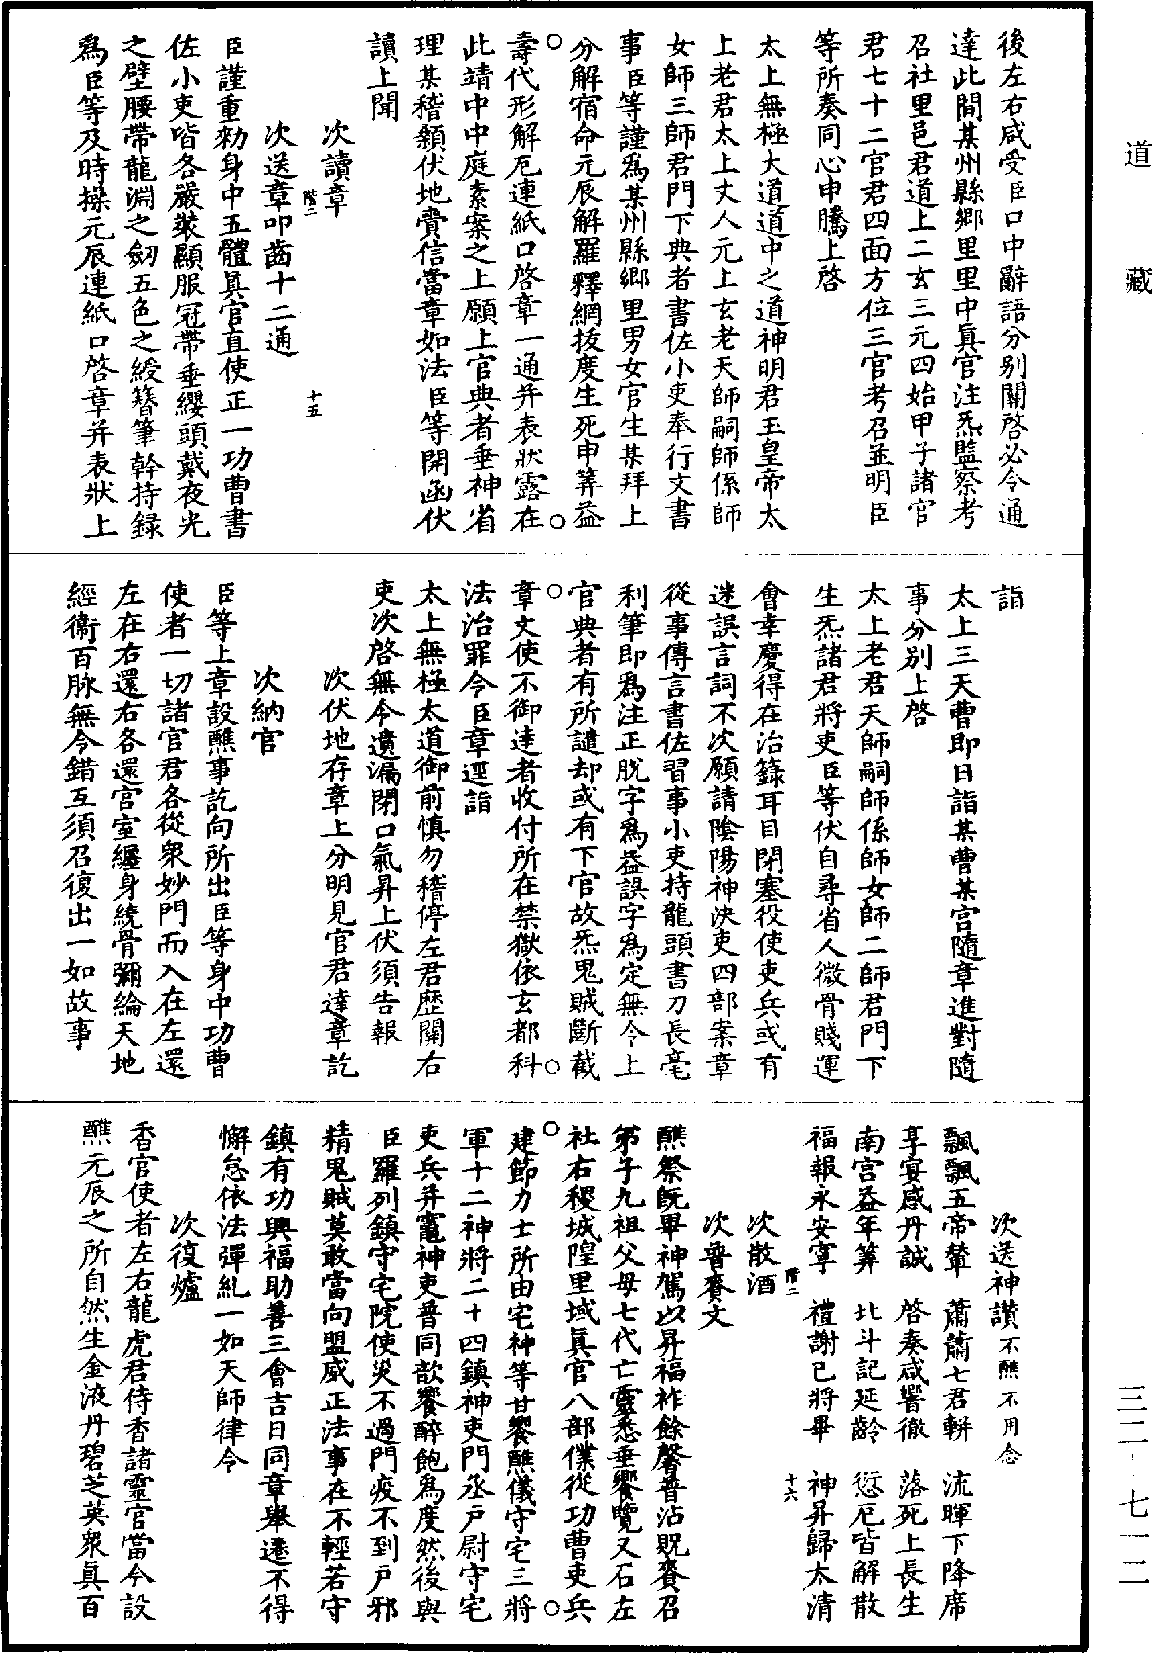 後左右咸受臣口中辭語分别關啓必令通
達此間某州縣鄉里里中眞官注炁監察考
召社里邑君道上二玄三元四始甲子諸官
君七十二官君四面方位三官考召並明臣
等所奏同心申騰上啓
太上無極大道道中之道神明君玉皇帝太
上老君太上丈人元上玄老天師嗣師係師
女師三師君門下典者書佐小吏奉行文書
事臣等謹爲某州縣鄉里男女官生某拜上
分解宿命元辰解羅釋網拔度生死申筭益
壽代形解厄連紙口啓章一通并表狀露在
此靖中中庭素案之上願上官典者垂神省
理某稽顙伏地賫信當章如法臣等開函伏
讀上聞
次讀章
階二 十五
次送章叩齒十二通
臣謹重勑身中五體眞官直使正一功曹書
佐小吏皆各嚴裝顯服冠帶垂纓頭戴夜光
之璧腰帶龍淵之劔五色之綬簪筆幹持録
爲臣等及時操元辰連紙口啓章并表狀上
詣
太上三天曹即日詣某曹某宫隨章進對隨
事分别上啓
太上老君天師嗣師係師女師二師君門下
生炁諸君將吏臣等伏自尋省人微骨賤運
會幸慶得在治籙耳目閉塞役使吏兵或有
迷誤言詞不次願請陰陽神決吏四部案章
從事傳言書佐習事小吏持龍頭書刀長毫
利筆即爲注正脱字爲益誤字爲定無令上
官典者有所譴却或有下官故炁鬼賊斷截
章文使不御達者收付所在禁獄依玄都科
法治罪今臣章逕詣
太上無極太道御前慎勿稽停左君歷關右
吏次啓無令遺漏閉口氣昇上伏須告報
次伏地存章上分明見官君達章訖
次納官
臣等上章設醮事訖向所出臣等身中功曹
使者一切諸官君各從衆妙門而入在左還
左在右還右各還宫室纏身繞骨彌綸天地
經衛百脉無令錯互須召復出一如故事
次送神讚不醮不用念
飄飄五帝輦 蕭蕭七君軿 流暉下降席
享宴感丹誠 啓奏咸響徹 落死上長生
南宫益年筭 北斗記延齡 愆厄皆解散
福報永安寧 禮謝已將畢 神昇歸太清
階二 十六
次散酒
次普賫文
醮祭旣畢神駕以昇福祚餘馨普沾貺賚召
第子九祖父母七代亡靈悉垂饗覽又石左
社右稷城隍里域眞官八部僕從功曹吏兵
建節力士所由宅神等甘饗醮儀守宅三將
軍十二神將二十四鎮神吏門丞户尉守宅
吏兵并竈神吏普同歆饗醉飽爲度然後與
臣羅列鎮守宅院使災不過門疫不到户邪
精鬼賊莫敢當向盟威正法事在不輕若守
鎮有功興福助善三會吉日同章舉遷不得
懈怠依法彈糺一如天師律令
次復爐
香官使者左右龍虎君侍香諸靈官當令設
醮元辰之所自然生金液丹碧芝英衆眞百
道藏
三二-七一二